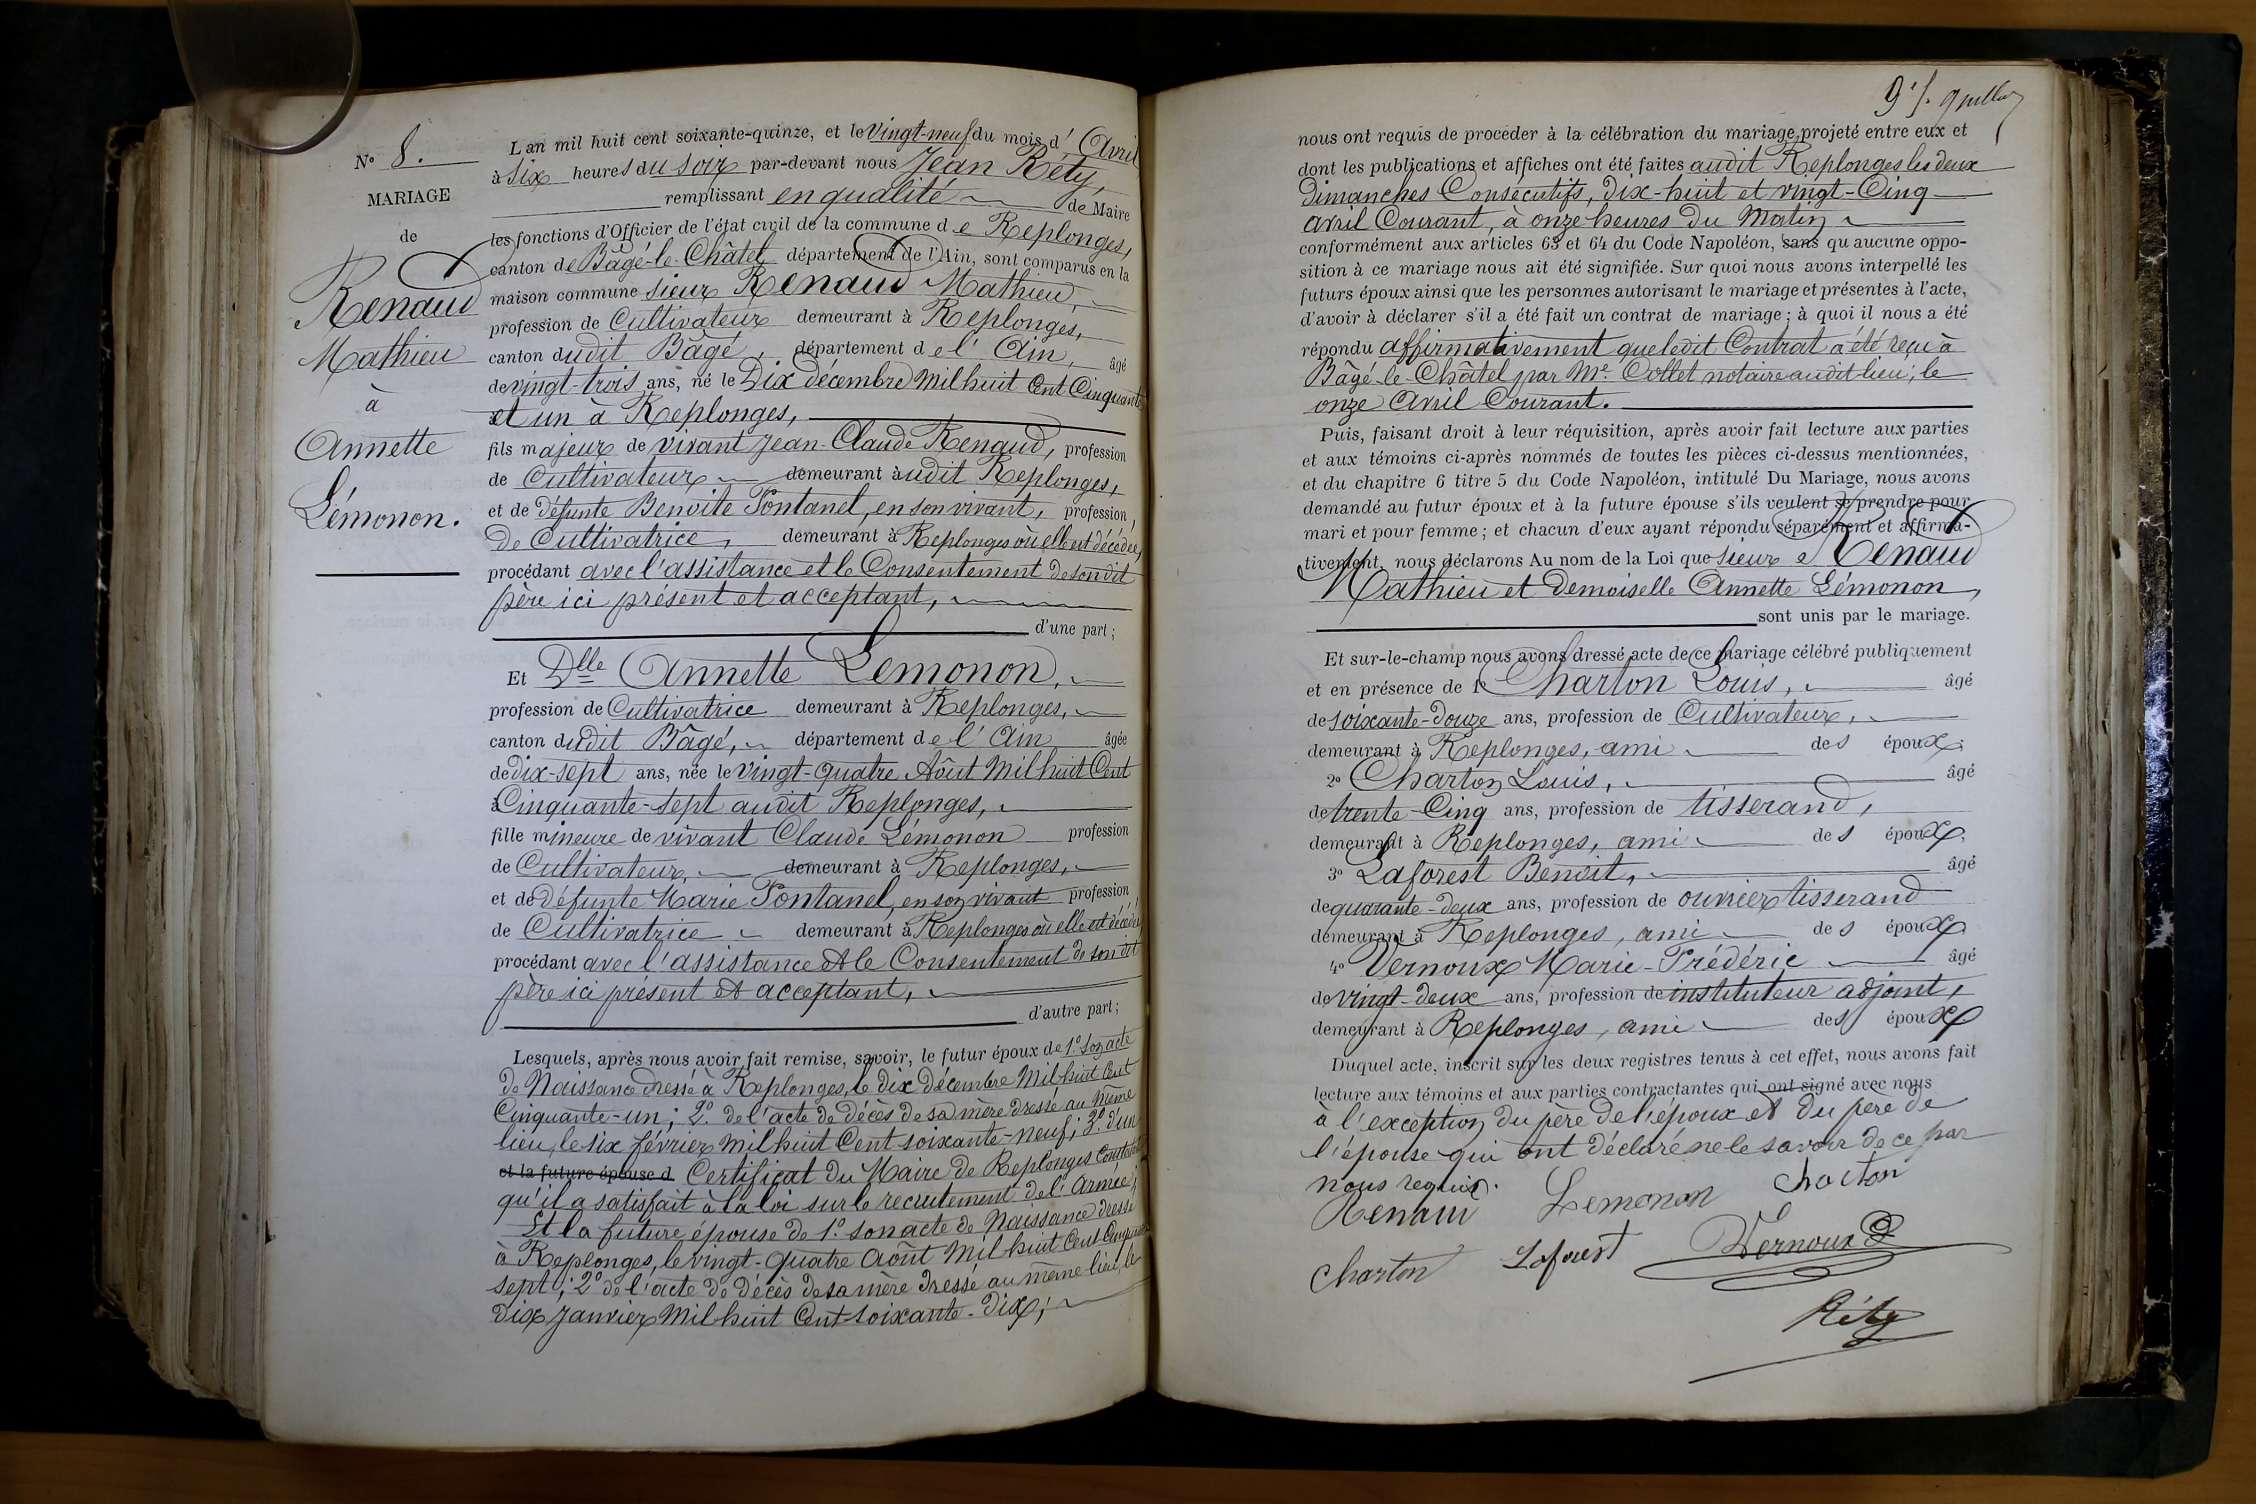 N° 8.
MARIAGE
de
Renaud
Mathieu
à
Annette
Lémonon.
L'an mil huit cent soixante-quinze, et le vingt-neuf du mois d' Avril
à six heures du soir par-devant nous Jean Réty,
remplissant en qualité de Maire
les fonctions d'Officier de l'état civil de la commune de Replonges,
canton de Bâgé-le-Châtel département de l'Ain, sont comparus en la
maison commune sieur Renaud Mathieu,
profession de Cultivateur demeurant à Replonges,
canton dudit Bâgé, département de l' Ain, âgé
de vingt-trois ans, né le Dix décembre Mil huit Cent Cinquante
et un à Replonges,
fils majeur de vivant Jean-Claude Renaud, profession
de Cultivateur demeurant audit Replonges,
et de défunte Benoite Pontanel, en son vivant, profession,
de Cultivatrice, demeurant à Replonges où elle est décédée,
procédant avec l'assistance et le Consentement de son dit
père ici présent et acceptant,
d'une part;
Et Dlle Annette Lemonon,
profession de Cultivatrice demeurant à Replonges,
canton dudit Bâgé, département de l' Ain âgée
de dix-sept ans, née le vingt-quatre Août Mil huit Cent
Cinquante-sept audit Replonges,
fille mineure de vivant Claude Lémonon profession
de Cultivateur, demeurant à Replonges,
et de défunte Marie Pontanel, en son vivant profession,
de Cultivatrice demeurant à Replonges où elle est décédée
procédant avec l'assistance et le Consentement de son dit
père ici présent et acceptant,
d'autre part;
Lesquels, après nous avoir fait remise, savoir, le futur époux de 1° son acte
de Naissance dressé à Replonges, le dix décembre Mil huit Cent
Cinquante-un; 2° de l'acte de décès de sa mère dressé au même
lieu, le six février Mil huit Cent soixante-neuf; 3° d'un
et la future épouse d Certificat du Maire de Replonges constatant
qu'il a satisfait à la loi sur le recrutement de l'Armée;
Et la future épouse de 1° son acte de Naissance dressé
à Replonges, le vingt-quatre Août Mil huit Cent Cinquante
sept; 2° de l'acte de décès de sa mère dressé au même lieu, le
dix Janvier Mil huit Cent soixante-dix;
9
nous ont requis de procéder à la célébration du mariage projeté entre eux et
dont les publications et affiches ont été faites audit Replonges les deux
Dimanches Consécutifs, dix-huit et vingt-Cinq
Avril Courant, à onze heures du Matin
conformément aux articles 63 et 64 du Code Napoléon, sans qu'aucune oppo-
sition à ce mariage nous ait été signifiée. Sur quoi nous avons interpellé les
futurs époux ainsi que les personnes autorisant le mariage et présentes à l'acte,
d'avoir à déclarer s'il a été fait un contrat de mariage; à quoi il nous a été
répondu affirmativement que ledit Contrat a été reçu à
Bâgé-le-Châtel par Me Collet notaire audit lieu; le
onze Avril Courant.
Puis, faisant droit à leur réquisition, après avoir fait lecture aux parties
et aux témoins ci-après nommés de toutes les pièces ci-dessus mentionnées,
et du chapitre 6 titre 5 du Code Napoléon, intitulé Du Mariage, nous avons
demandé au futur époux et à la future épouse s'ils veulent se prendre pour
mari et pour femme; et chacun d'eux ayant répondu séparément et affirma-
tivement, nous déclarons Au nom de la Loi que sieur Renaud
Mathieu et Demoiselle Annette Lémonon,
sont unis par le mariage.
Et sur-le-champ nous avons dressé acte de ce mariage célébré publiquement
et en présence de 1° Charton Louis, âgé
de soixante-douze ans, profession de Cultivateur,
demeurant à Replonges, ami des époux;
2° Charton Louis, âgé
de trente-Cinq ans, profession de tisserand,
demeurant à Replonges, ami des époux;
3° Laforest Benoit, âgé
de quarante-deux ans, profession de ouvrier tisserand
demeurant à Replonges, ami des époux
4° Vernoux Marie-Frédéric âgé
de vingt-deux ans, profession de instituteur adjoint,
demeurant à Replonges, ami des époux
Duquel acte, inscrit sur les deux registres tenus à cet effet, nous avons fait
lecture aux témoins et aux parties contractantes qui ont signé avec nous
à l'exception du père de l'époux et du père de
l'épouse qui ont déclaré ne le savoir de ce par
nous requis.
Renaud Lemonon Charton
Charton Laforest Vernoux
Réty